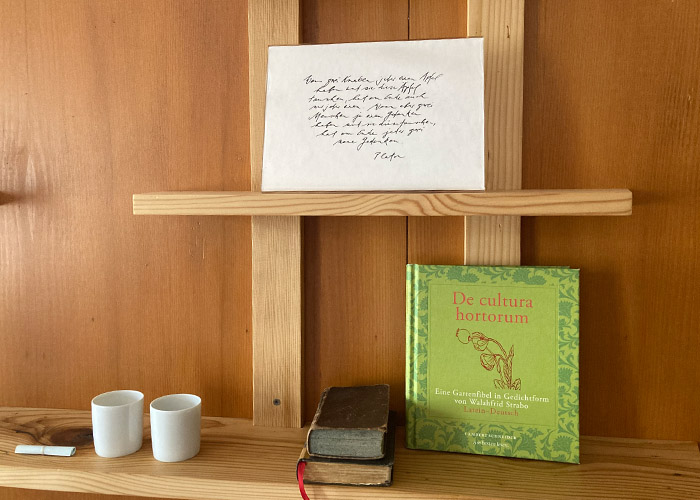 Wenn zwei Knaben jeder einen Apfel
haben und sie diese Äpfel
tauschen, hat am Ende auch
nur jeder einen. Wenn aber zwei
Menschen je einen Gedanken
haben und sie diese tauschen,
hat am Ende jeder zwei
neue Gedanken
Platon
De cultura
hortorum
Eine Gartenfibel in Gedichtform
von Walahfrid Strabo
Latein-Deutsch
LAMBERT SCHNEIDER